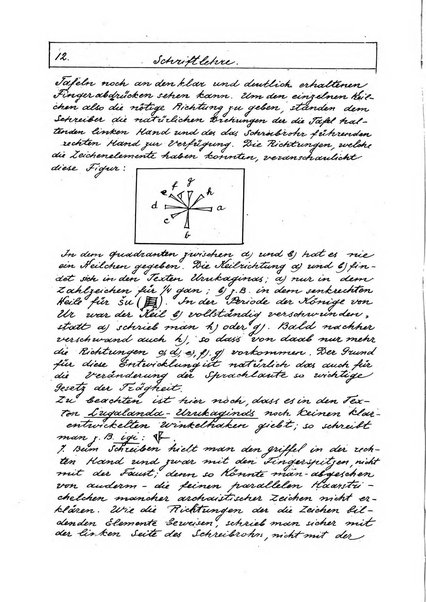 12. Schriftlehre.
Tafeln noch an den klar und deutlich erhaltenen
Fingerabdrücken sehen kann. Um den einzelnen Keil-
chen also die nötige Richtung zu geben, standen dem
Schreiber die natürlichen Drehungen der die Tafel hal-
tenden linken Hand und der das Schreibrohr führenden
rechten Hand zur Verfügung. Die Richtungen, welche
die Zeichenelemente haben konnten, veranschaulicht
diese Figur:
g
f h
e
d a
c
b
In dem Quadranten zwischen a) und b) hat es nie
ein Keilchen gegeben. Die Keilrichtung a) und b) fin-
det sich in den Texten Urukaginas; a) nur in dem
Zahlzeichen für gan; b) z.B. in dem senkrechten
Keile für šu ( ). In der Periode der Könige von
Ur war der Keil b) vollständig verschwunden,
statt a) schrieb man h) oder g). Bald nachher
verschwand auch h), so dass von da ab nur mehr
die Richtungen c), d), e), f), g) vorkommen. Der Grund
für diese Entwicklung ist natürlich das auch für
die Veränderung der Sprachlaute so wichtige
Gesetz der Trägheit.
Zu beachten ist hier noch, dass es in den Tex-
ten Lugalanda-Urukaginas noch keinen klar
entwickelten Winkelhaken giebt; so schreibt
man z.B. igi:
7. Beim Schreiben hielt man den Griffel in der rech-
ten Hand und zwar mit den Fingerspitzen, nicht
mit der Faust; denn so könnte man - abgesehen
von anderm - die feinen parallelen Haarstri-
chelchen mancher archaistischer Zeichen nicht er-
klären. Wie die Richtungen der die Zeichen bil-
denden Elemente beweisen, schrieb man sicher mit
der linken Seite des Schreibrohrs, nicht mit der